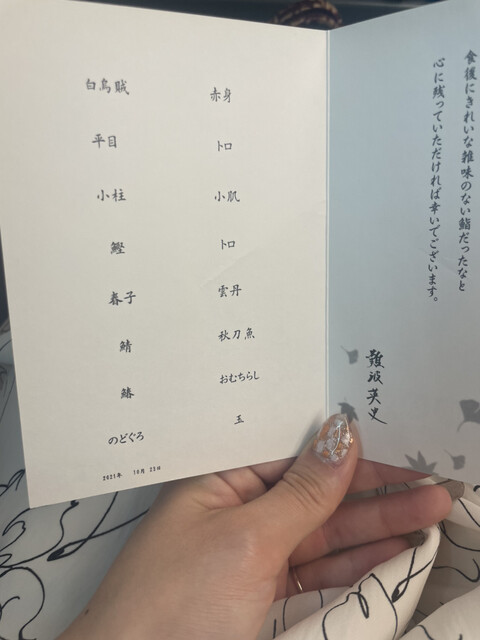 白烏賊
平目
小柱
鰹
春子
鯖
鰆
のどぐろ
赤身
トロ
小肌
トロ
雲丹
秋刀魚
おむちらし
玉
2021年 10月 23日
食後にきれいな雑味のない鮨だったなと
心に残っていただければ幸いでございます。
難波英史